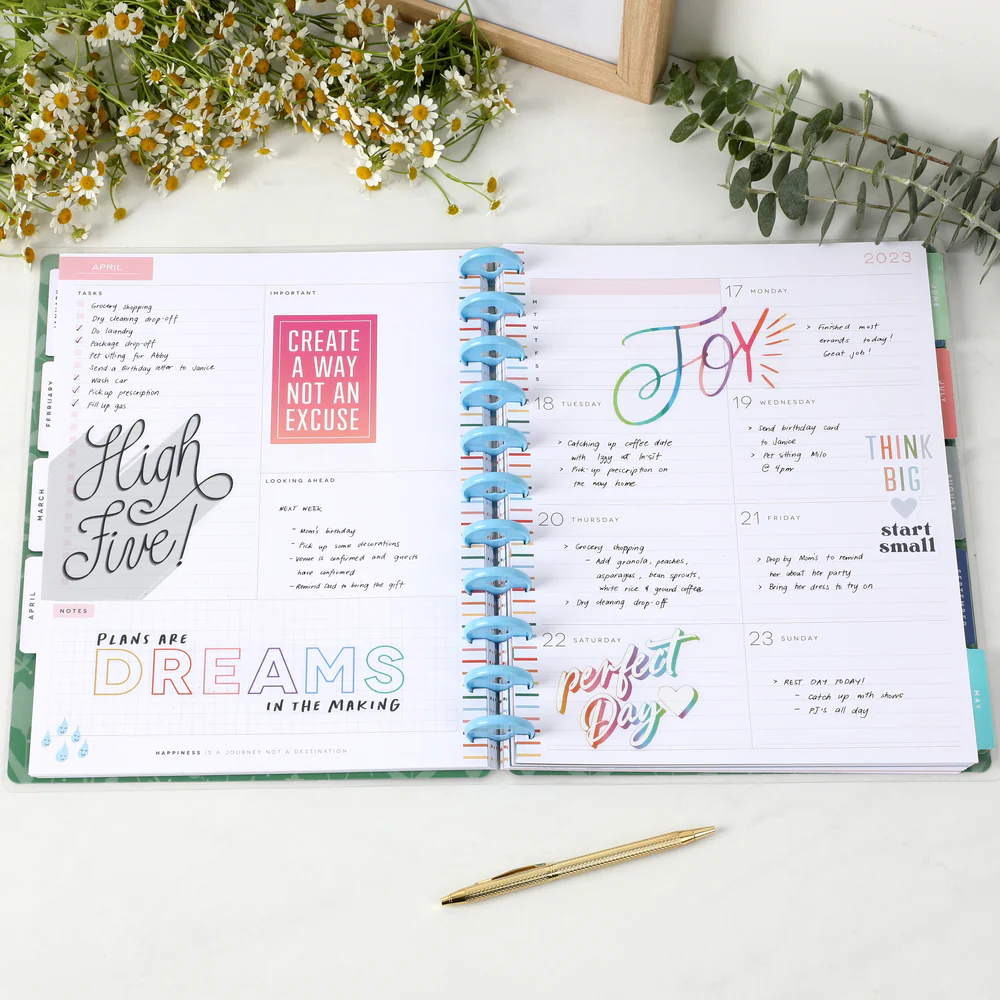 APRIL
TASKS
Grocery shopping
Dry cleaning drop-off
Do laundry
Package drop-off
Pet sitting for Abby
Send a Birthday letter to Janice
Wash car
Pick up prescription
Fill up gas
High
Five!
IMPORTANT
CREATE
A WAY
NOT AN
EXCUSE
LOOKING AHEAD
NEXT WEEK
- Mom's birthday
- Pick up some decorations
- Venue is confirmed and guests
have confirmed
- Remind Dad to bring the gift
NOTES
PLANS ARE
DREAMS
IN THE MAKING
HAPPINESS IS A JOURNEY NOT A DESTINATION
FEBRUARY
MARCH
APRIL
2023
M
T
W
T
F
S
S
JOY
17 MONDAY
> Finished most
errands today!
Great job!
18 TUESDAY
> Catching up coffee date
with Izzy at In-sit
> Pick-up prescription on
the way home
19 WEDNESDAY
> Send birthday card
to Janice
> Pet sitting Milo
@ 4pm
THINK
BIG
start
small
20 THURSDAY
> Grocery shopping
- Add granola, peaches,
asparagus, bean sprouts,
white rice & ground coffee
> Dry cleaning drop-off
21 FRIDAY
> Drop by Mom's to remind
her about her party
> Bring her dress to try on
22 SATURDAY
perfect
Day
23 SUNDAY
> REST DAY TODAY!
- catch up with shows
- PJ's all day
JULY
MAY